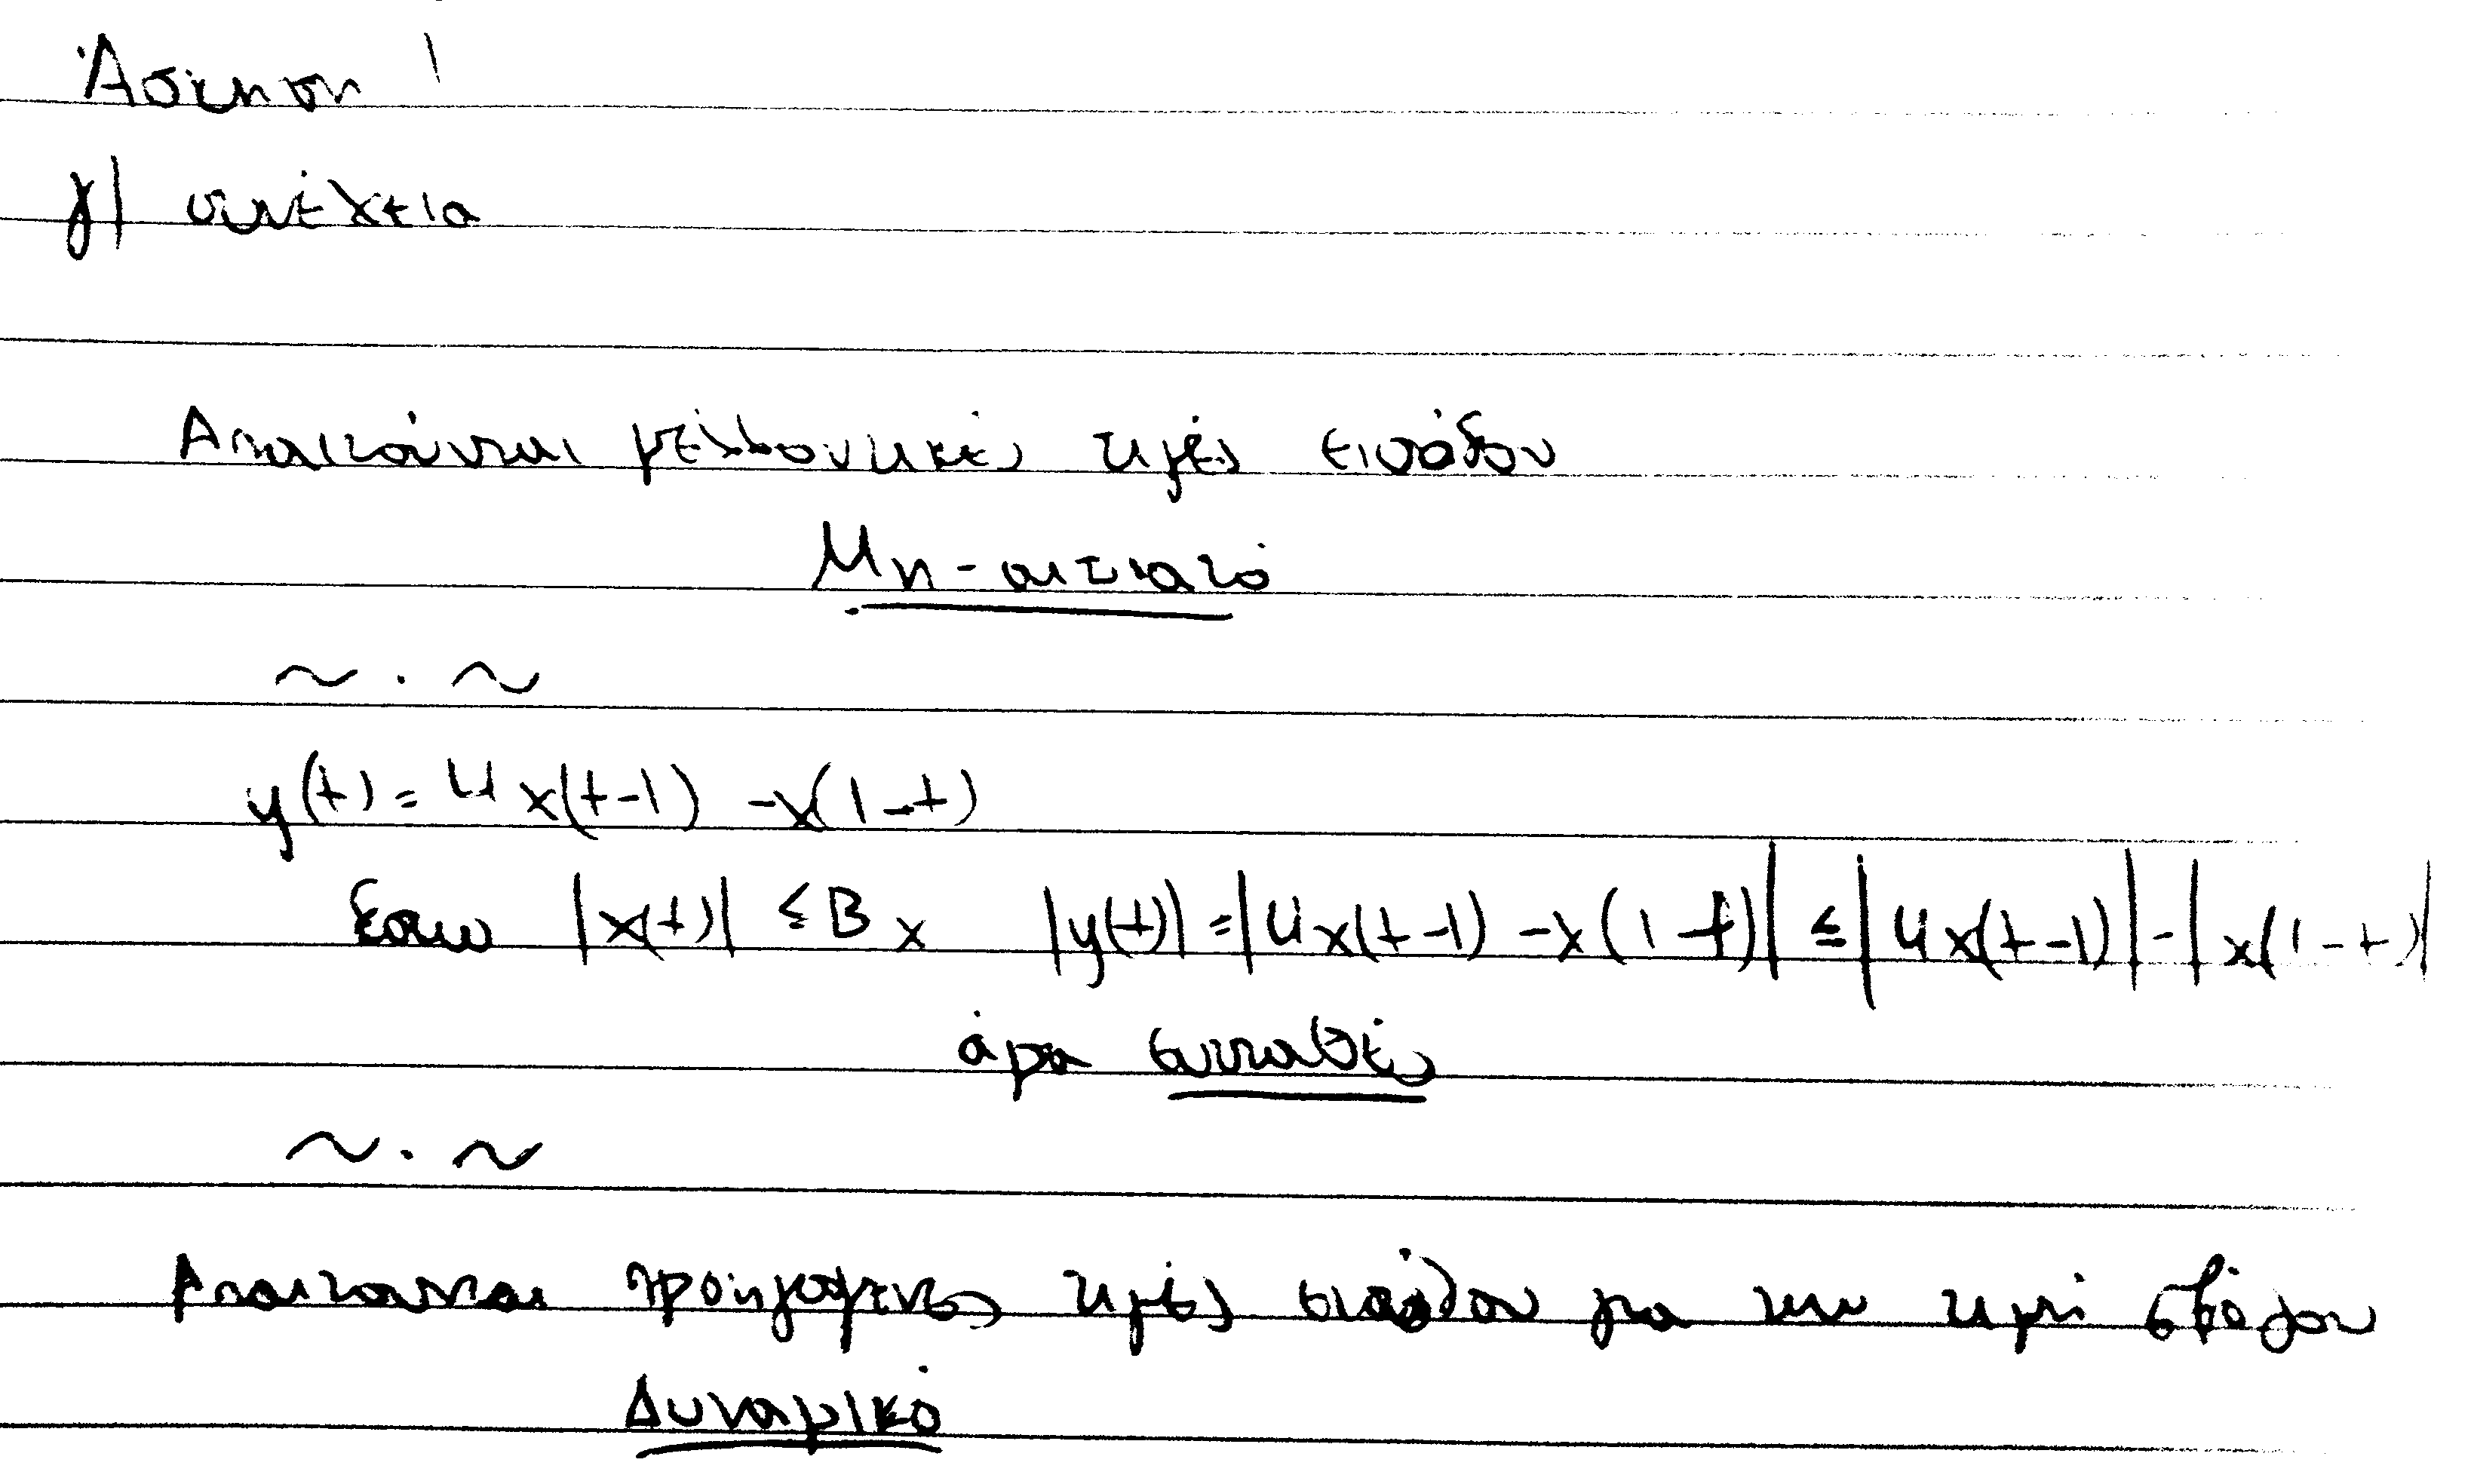 Άσκηση 1
γ| συνέχεια
Απαιτούνται μελλοντικές τιμές εισόδου
Μη-αιτιατό
~ . ~
y(t) = 4x(t-1) -x(1-t)
έστω |x(t)| ≤ Bx |y(t)| = |4x(t-1) -x(1-t)| ≤ |4x(t-1)| - |x(1-t)|
άρα ευσταθές
~ . ~
Απαιτούνται προηγούμενες τιμές εισόδου για την τιμή εξόδου
Δυναμικό